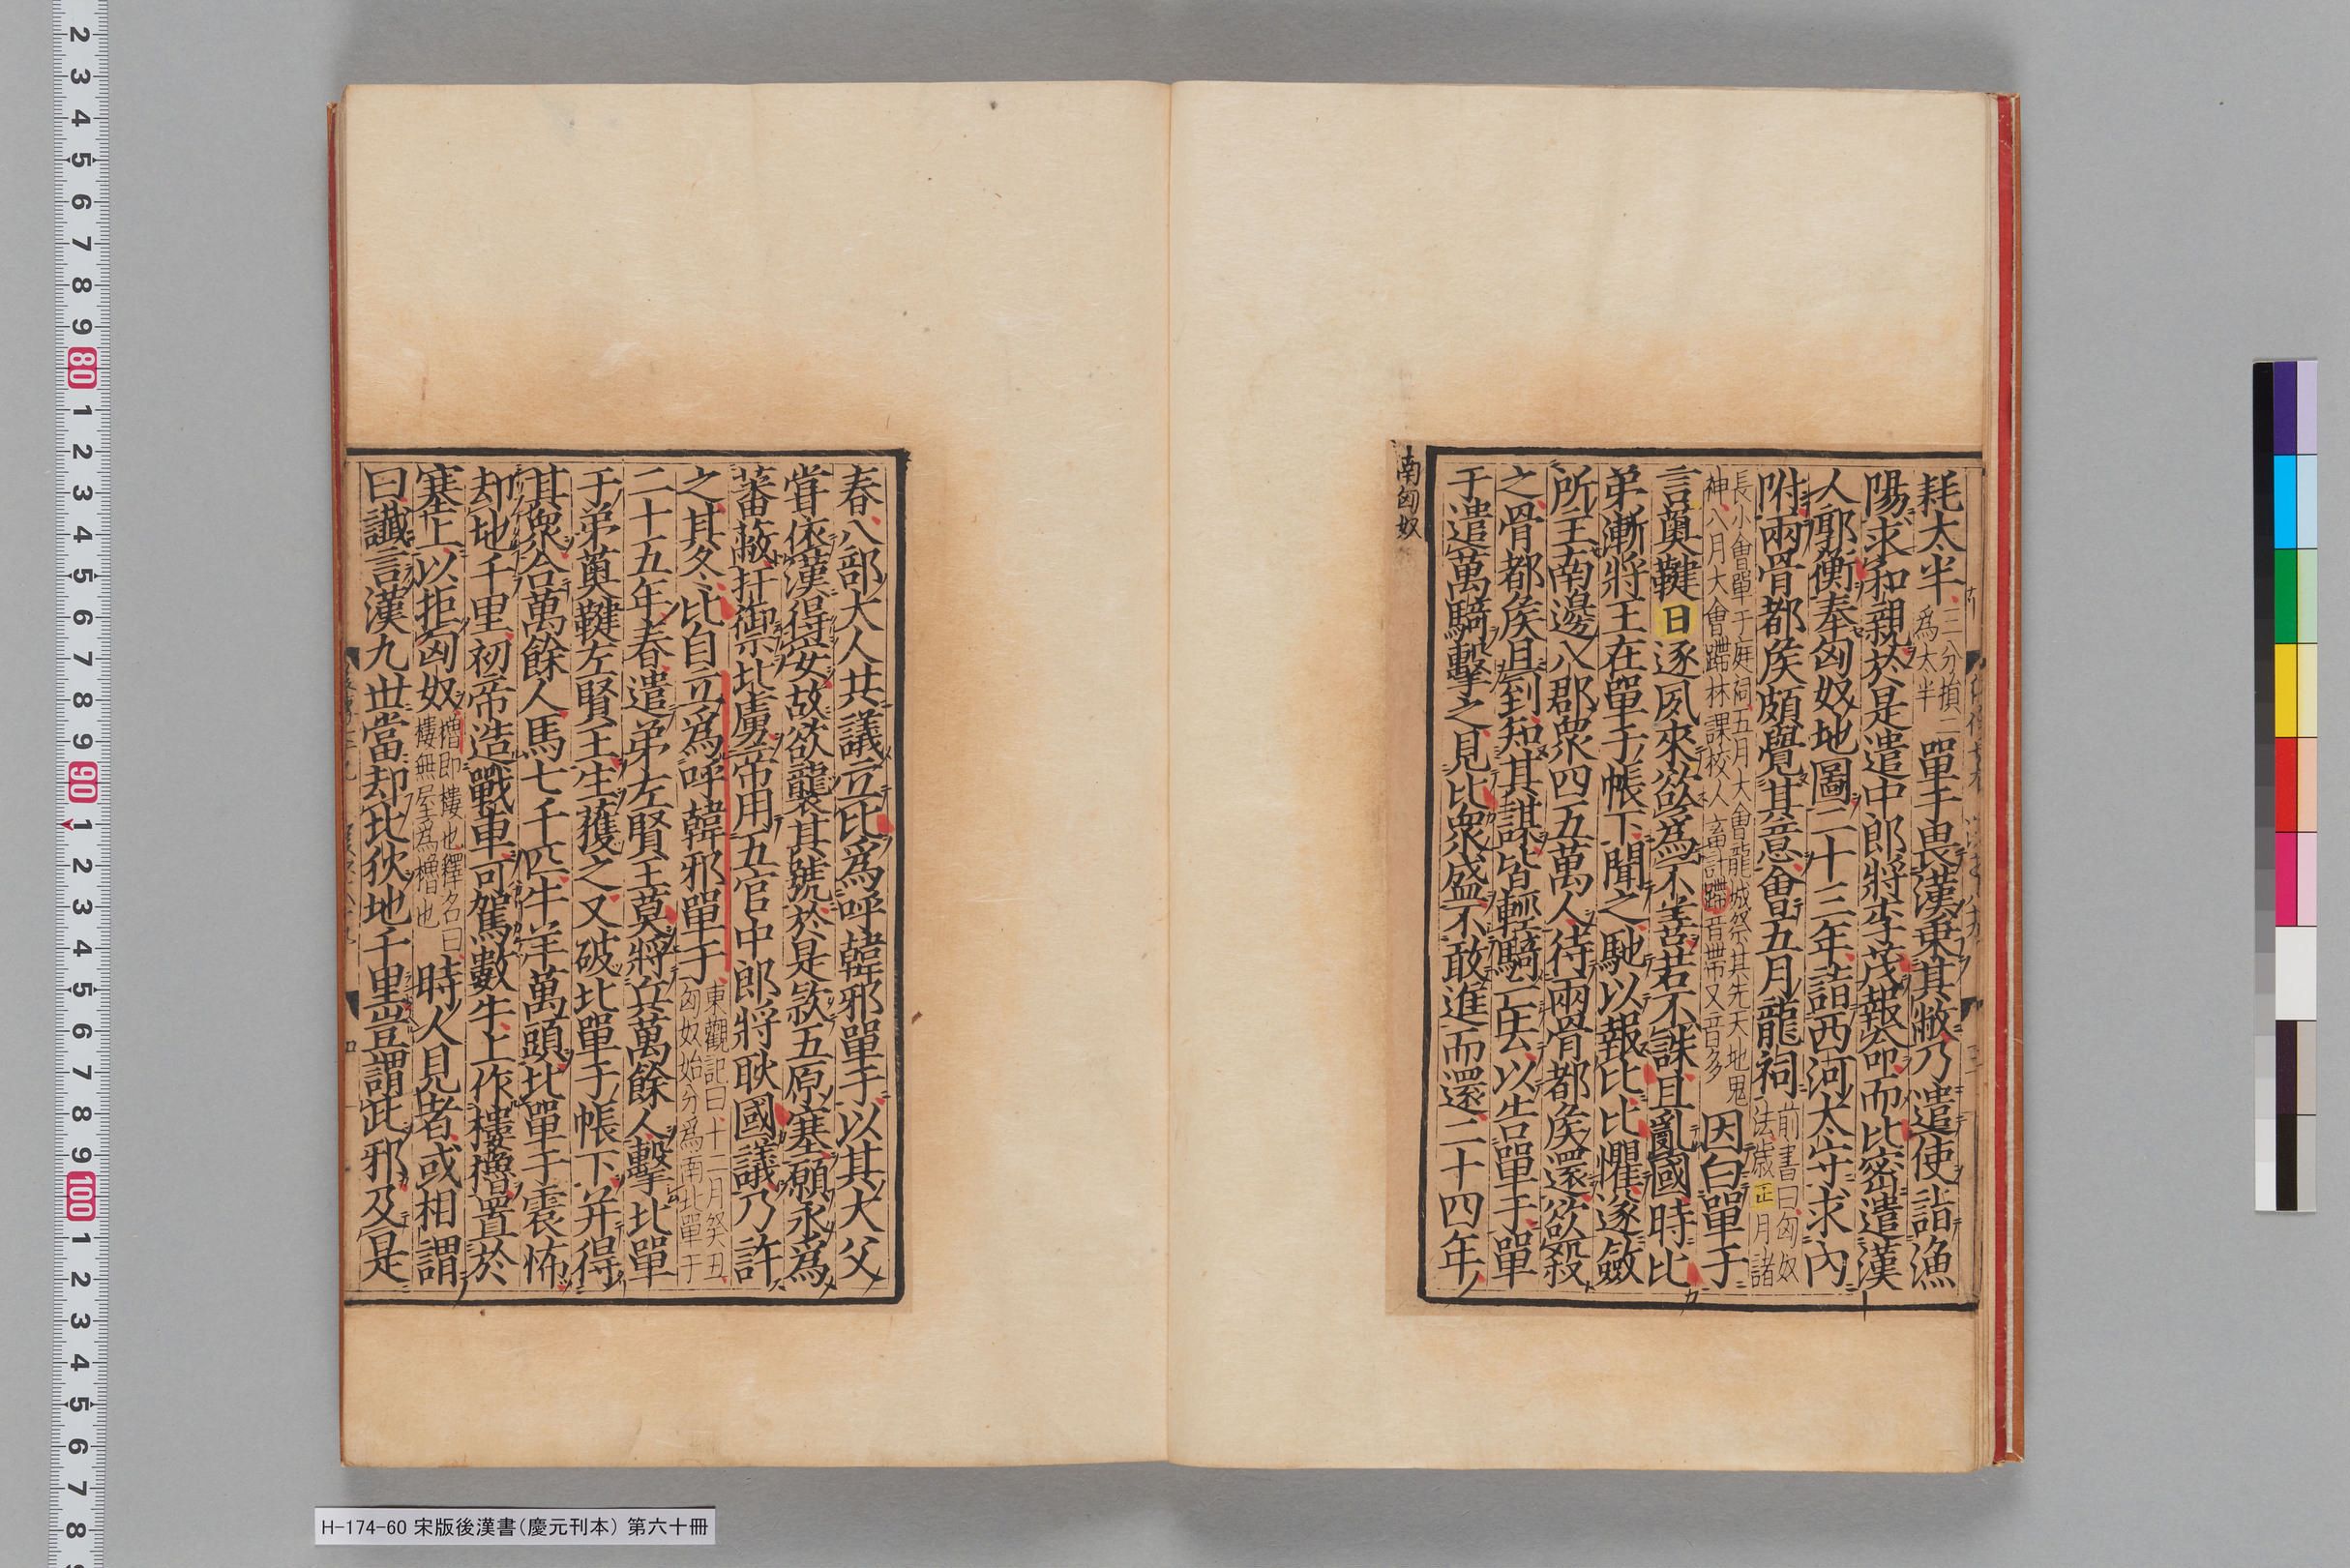 耗太半三分損二爲太半單于畏漢乗其敝乃遣使詣漁
陽求和親於是遣中郎將李茂報命而比密遣漢
人郭衡奉匈奴地圖二十三年詣西河太守求內
附兩骨都侯頗覺其意會五月龍祠前書曰匈奴法歲正月諸
長小會單于庭祠五月大會龍城祭其先天地鬼神八月大會蹛林課校人畜計蹛音帶又音多因白單于
言薁鞬日逐夙來欲爲不善若不誅且亂國時比
弟漸將王在單于帳下聞之馳以報比比懼遂斂
所主南邊八郡衆四五萬人待兩骨都侯還欲殺
之骨都侯且到知其謀皆輕騎亡去以告單于單
于遣萬騎擊之見比衆盛不敢進而還二十四年
南匈奴
春八部大人共議立比爲呼韓邪單于以其大父
嘗依漢得安故欲襲其號於是款五原塞願永爲
蕃蔽扞禦北虜帝用五官中郎將耿國議乃許
之其冬比自立爲呼韓邪單于東觀記曰十二月癸丑匈奴始分爲南北單于
二十五年春遣弟左賢王莫將兵萬餘人擊北單
于弟薁鞬左賢王生獲之又破北單于帳下并得
其衆合萬餘人馬七千匹牛羊萬頭北單于震怖
却地千里初帝造戰車可駕數牛上作樓櫓置於
塞上以拒匈奴櫓即樓也釋名曰樓無屋爲櫓也時人見者或相謂
曰讖言漢九世當却北狄地千里豈謂此邪及是
H-174-60 宋版後漢書(慶元刊本) 第六十冊
2
3
4
5
6
7
8
9
80
1
2
3
4
5
6
7
8
9
90
1
2
3
4
5
6
7
8
9
100
1
2
3
4
5
6
7
8